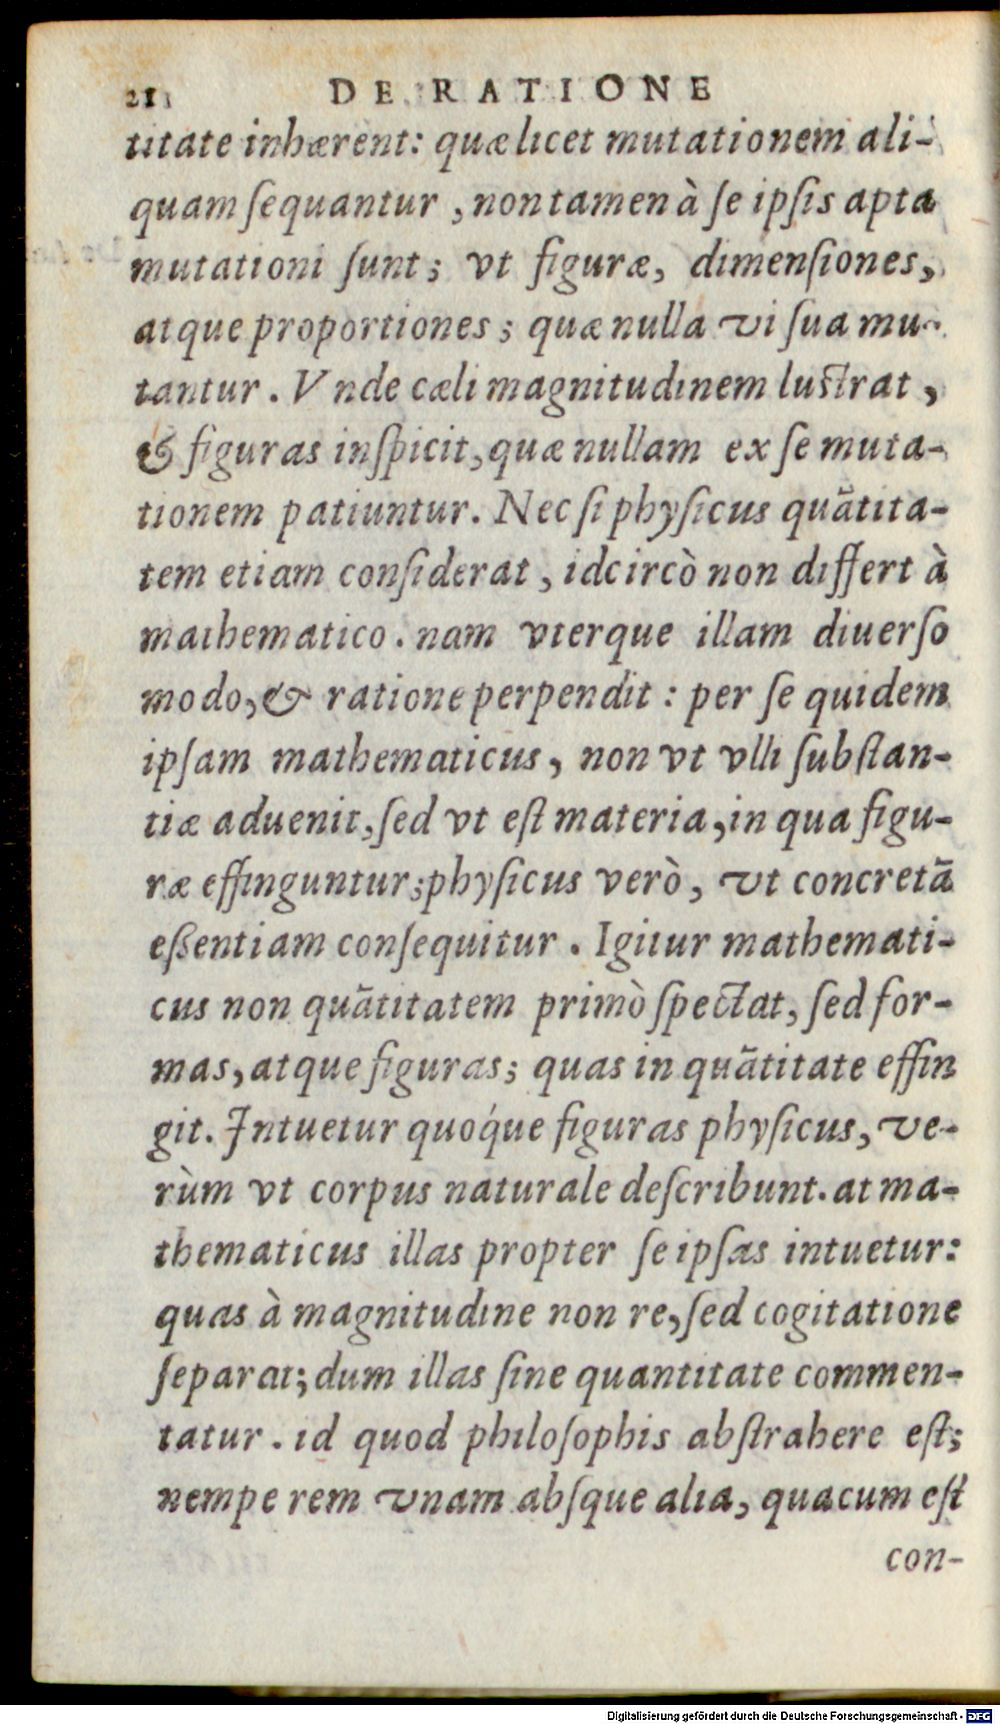 21
DE RATIONE
titate inhærent: quæ licet mutationem ali-
quam ſequantur, non tamen à ſe ipſis apta
mutationi ſunt; vt figuræ, dimenſiones,
atque proportiones; quæ nulla vi ſua mu-
tantur. Vnde cæli magnitudinem luſtrat,
& figuras inſpicit, quæ nullam ex ſe muta-
tionem patiuntur. Nec ſi phyſicus quãtita-
tem etiam conſiderat, idcircò non differt à
mathematico. nam vterque illam diuerſo
modo, & ratione perpendit: per ſe quidem
ipſam mathematicus, non vt vlli ſubſtan-
tiæ aduenit, ſed vt eſt materia, in qua figu-
ræ effinguntur; phyſicus verò, vt concretã
eßentiam conſequitur. Igitur mathemati-
cus non quãtitatem primò ſpectat, ſed for-
mas, atque figuras; quas in quãtitate effin
git. Intuetur quoq́ue figuras phyſicus, ve-
rùm vt corpus naturale deſcribunt. at ma-
thematicus illas propter ſe ipſas intuetur:
quas à magnitudine non re, ſed cogitatione
ſeparat; dum illas ſine quantitate commen-
tatur. id quod philoſophis abſtrahere eſt;
nempe rem vnam abſque alia, quacum eſt
con-
Digitalisierung gefördert durch die Deutsche Forschungsgemeinschaft - DFG